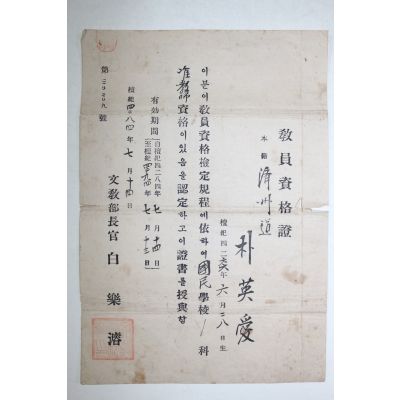 敎員資格證
本籍 濟州道
朴英愛
檀紀四二 年六月二八日生
이분이敎員資格檢定規程에依하여國民學校 科
准敎師資格이있음을認定하고이證書를授與함
有効期間 自檀紀四二八四年七月十四日
至檀紀 年七月十三日
檀紀四二八四年七月十四日
文敎部長官 白樂濬
第 號